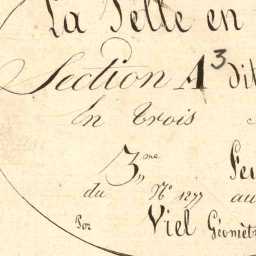 La Selle en
Section A3 dit
En trois
3me Feu
du No 1277 au
Par Viel Géomèt